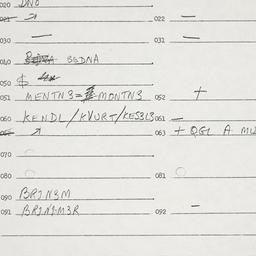 020 DNO
021 022 —
030 — 031 —
040 BEDNA
050 $
051 MENTN3 = MONTN3 052 +
060 KENDL/KVURT/KE5313 061 —
063 + QGL A
070
080 081
090 BR1N3M
091 BR1N1M3R 092 —